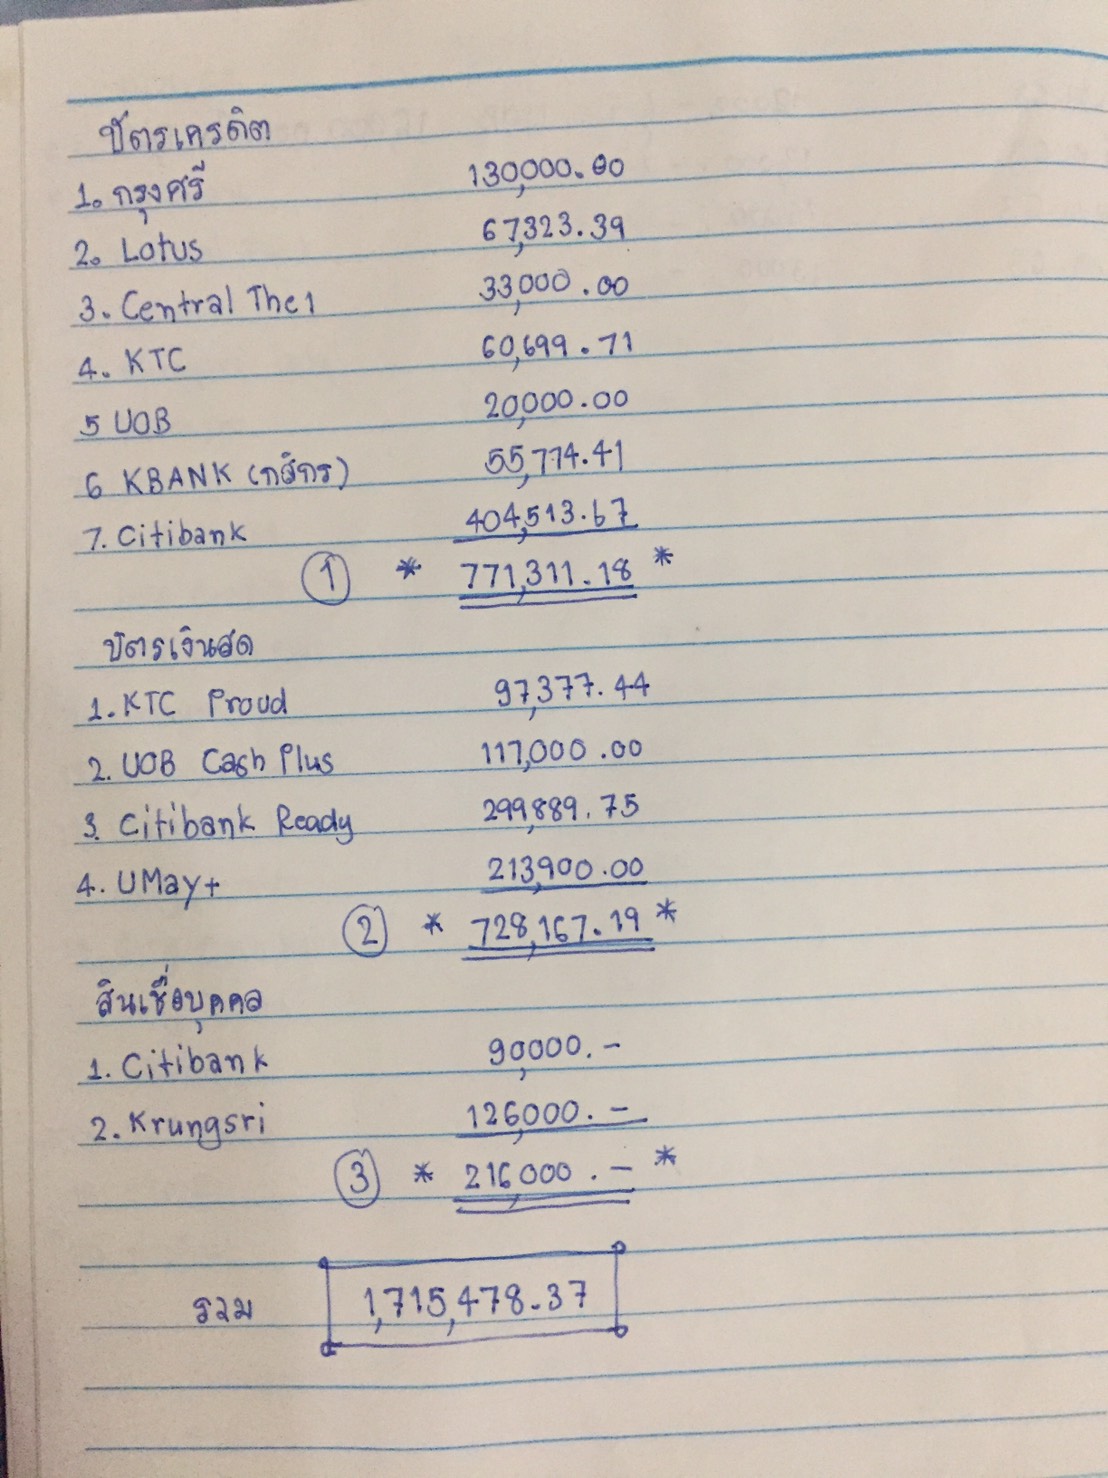 บัตรเครดิต
1. กรุงศรี 130,000.00
2. Lotus 67,323.39
3. Central The1 33,000.00
4. KTC 60,699.71
5 UOB 20,000.00
6 KBANK (กสิกร) 55,774.41
7. Citibank 404,513.67
① * 771,311.18 *
บัตรเงินสด
1. KTC Proud 97,377.44
2. UOB Cash Plus 117,000.00
3. Citibank Ready 299,889.75
4. UMay+ 213,900.00
② * 728,167.19 *
สินเชื่อบุคคล
1. Citibank 90,000.-
2. Krungsri 126,000.-
③ * 216,000.- *
รวม 1,715,478.37